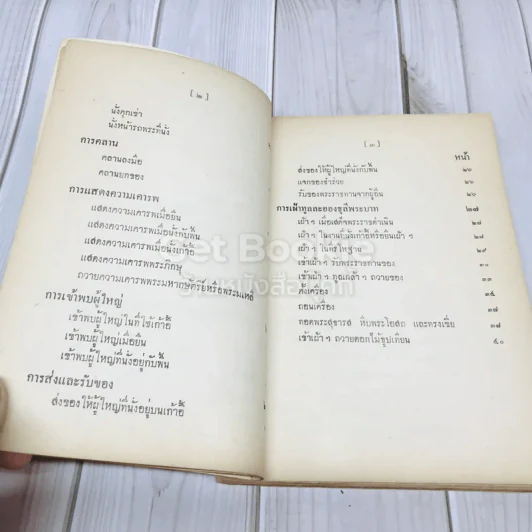 [ ๒ ]
นั่งคุกเข่า
นั่งหน้ารถพระที่นั่ง
การคลาน
คลานลงมือ
คลานยกของ
การแสดงความเคารพ
แสดงความเคารพเมื่อยืน
แสดงความเคารพเมื่อนั่งกับพื้น
แสดงความเคารพเมื่อนั่งเก้าอี้
แสดงความเคารพพระภิกษุ
ถวายความเคารพพระมหากษัตริย์หรือพระมเหสี
การเข้าพบผู้ใหญ่
เข้าพบผู้ใหญ่ในที่ใช้เก้าอี้
เข้าพบผู้ใหญ่เมื่อยืน
เข้าพบผู้ใหญ่ที่นั่งอยู่กับพื้น
การส่งและรับของ
ส่งของให้ผู้ใหญ่ที่นั่งอยู่บนเก้าอี้
[ ๓ ]
หน้า
ส่งของให้ผู้ใหญ่ที่นั่งกับพื้น
แจกของชำร่วย
รับของพระราชทานจากผู้อื่น
การเฝ้าทูลละอองธุลีพระบาท ๒๗
เฝ้าฯ เมื่อเสด็จพระราชดำเนิน ๒๗
เฝ้าฯ ในงานยืนเก้าอี้หรือยืนเฝ้าฯ
เฝ้าฯ ในที่รโหฐาน
เข้าเฝ้าฯ รับพระราชทานของ
เข้าเฝ้าฯ ทูลเกล้าฯ ถวายของ
ตั้งเครื่อง
ถอนเครื่อง
ทอดพระสุธารส หีบพระโอสถ และทรงเขี่ย ๓๗
เข้าเฝ้าฯ ถวายดอกไม้ธูปเทียน ๔๐
Get Bookie
ร้านหนังสือเก่า